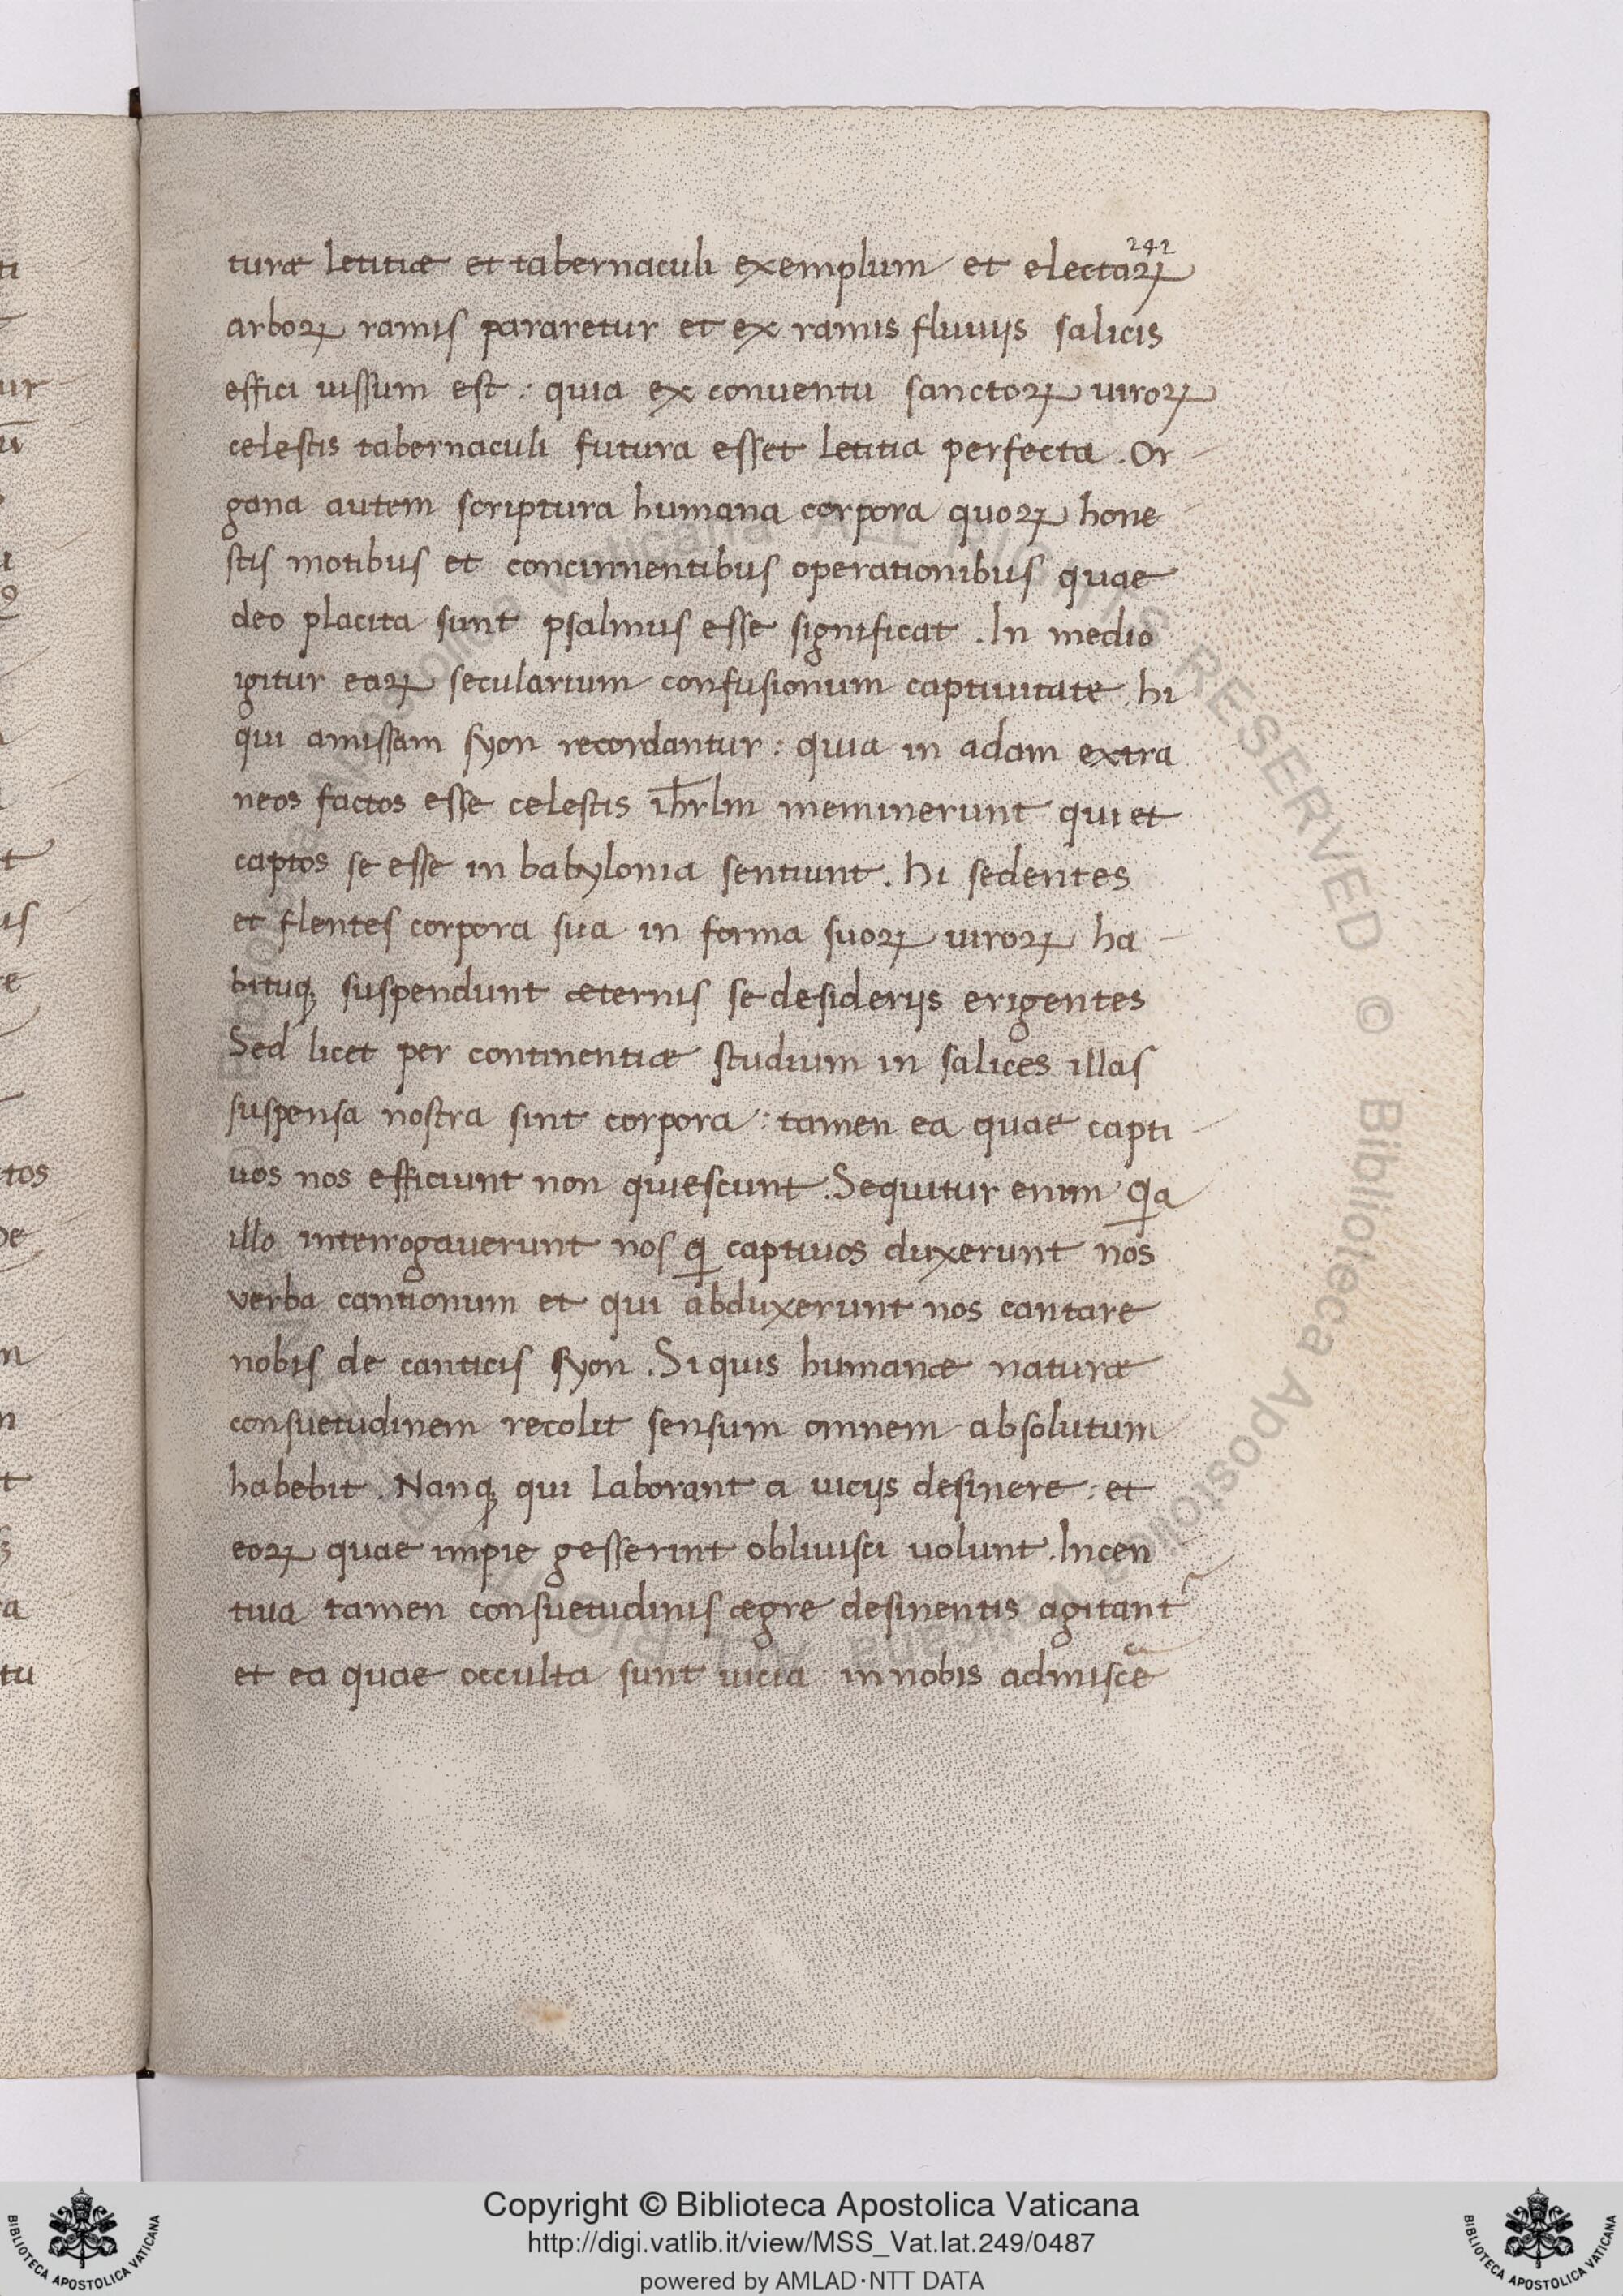 242
turæ letitiæ et tabernaculi exemplum et electaꝝ
arboꝝ ramis pararetur et ex ramis fluuijs salicis
effici uissum est : quia ex conuentu sanctoꝝ uiroꝝ
celestis tabernaculi futura esset letitia perfecta . Or
gana autem scriptura humana corpora quoꝝ hone
stis motibus et concinnentibus operationibus quae
deo placita sunt psalmus esse significat . In medio
igitur eaꝝ secularium confusionum captiuitate hi
qui amissam syon recordantur : quia in adam extra
neos factos esse celestis ihrlm meminerunt qui et
captos se esse in babylonia sentiunt . hi sedentes
et flentes corpora sua in forma suoꝝ uiroꝝ ha
bituqꝫ suspendunt æternis se desiderijs erigentes
Sed licet per continentiæ studium in salices illas
suspensa nostra sint corpora : tamen ea quae capti
uos nos efficiunt non quiescunt . Sequitur enim qa
illo interrogauerunt nos q captiuos duxerunt nos
verba cantionum et qui abduxerunt nos cantare
nobis de canticis syon . Si quis humanæ naturæ
consuetudinem recolit sensum omnem absolutum
habebit . Nanqꝫ qui laborant a uicijs desinere : et
eoꝝ quae impie gesserint obliuisci uolunt . Incen
tiua tamen consuetudinis ægre desinentis agitant᷑
et ea quae occulta sunt uicia in nobis admiscē
ti
ur
ū
t
is
tos
tu
Copyright © Biblioteca Apostolica Vaticana
http://digi.vatlib.it/view/MSS_Vat.lat.249/0487
powered by AMLAD·NTT DATA
BIBLIOTECA APOSTOLICA VATICANA
BIBLIOTECA APOSTOLICA VATICANA